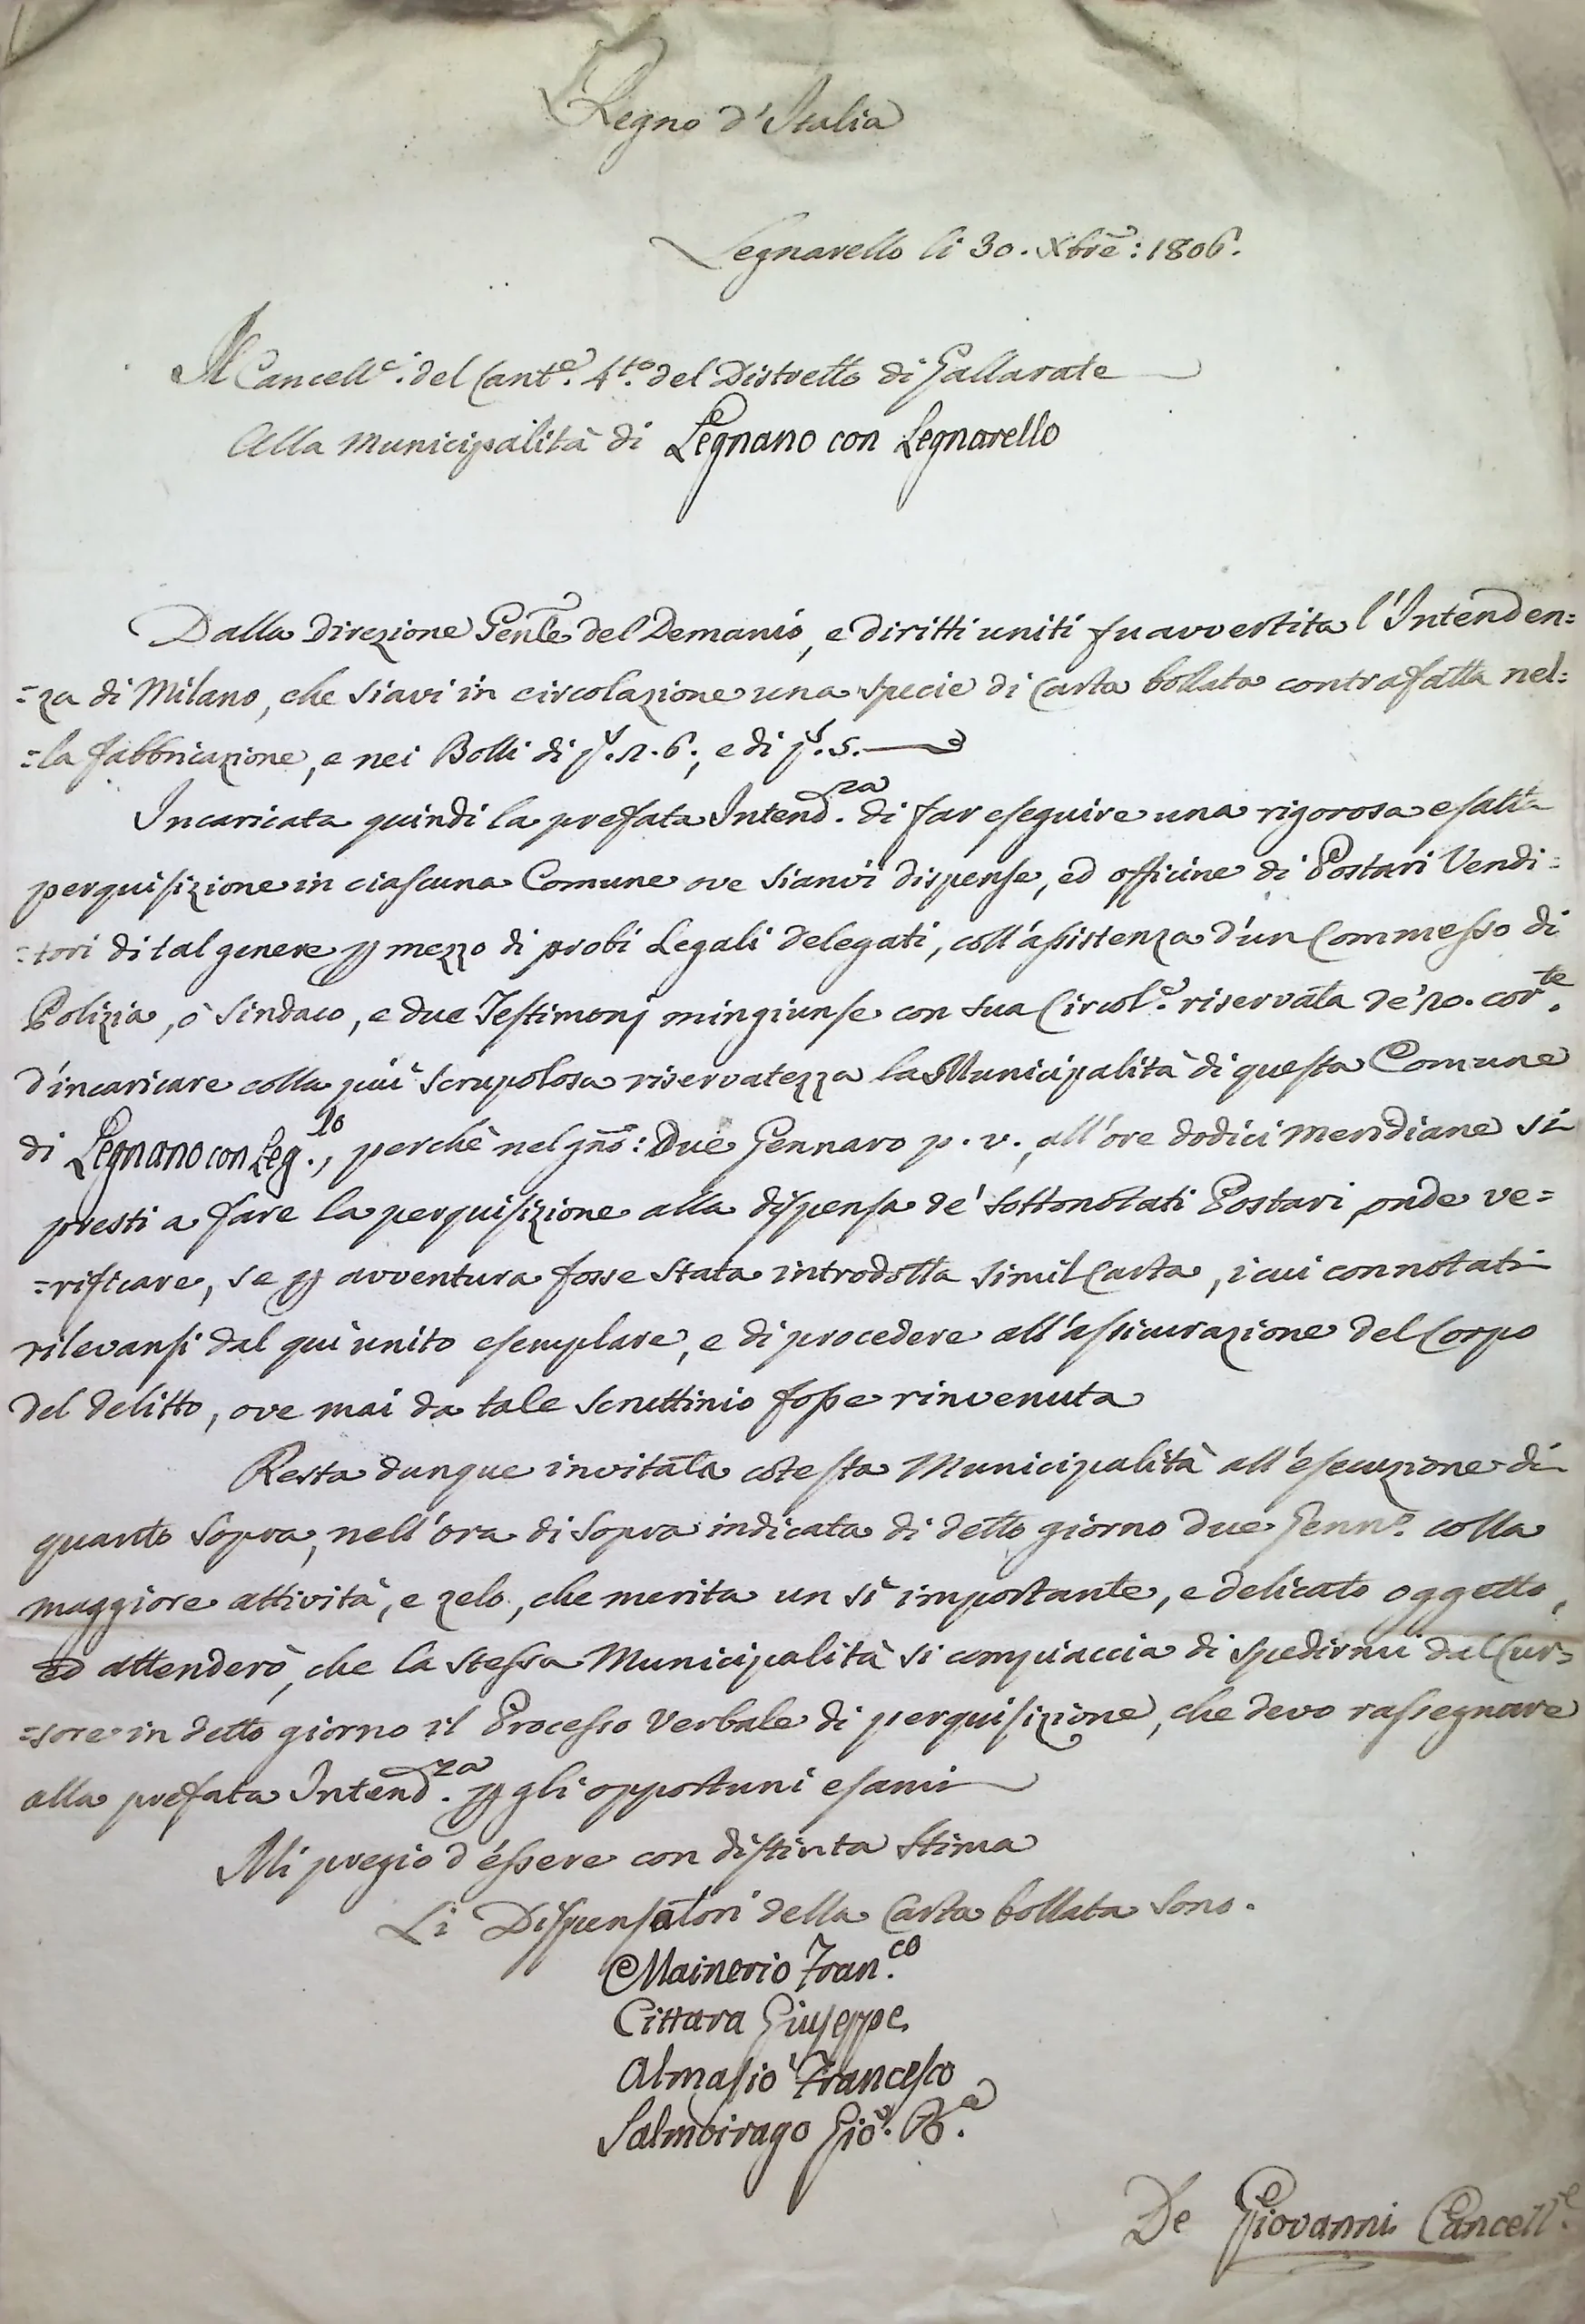 Regno d'Italia
Legnarello li 30. Xbre: 1806.
Il Cancelle. del Cante. 4to. del Distretto di Gallarate
Alla Municipalità di Legnano con Legnarello
Dalla Direzione Genle del Demanio, e diritti uniti fu avvertita l'Intenden=
=za di Milano, che siavi in circolazione una specie di Carta bollata contrafatta nel=
=la fabbricazione, e nei Bolli di
Incaricata quindi la prefata Intendza. di far eseguire una rigorosa esatta
perquisizione in ciascuna Comune ove sianvi dispense, ed officine di Postari Vendi=
=tori di tal genere p mezzo di probi Legali delegati, coll'assistenza d'un Commesso di
Polizia, ò Sindaco, e due Testimonj mingiunse con sua Circole. riservata de' 20. corte.
d'incaricare colla più scrupolosa riservatezza la Municipalità di questa Comune
di Legnano con Leglo., perchè nel gno: Due Gennaro p. v., all'ore dodici meridiane si
presti a fare la perquisizione alla dispensa de' sottonotati Postari onde ve=
=rificare, se p avventura fosse stata introdotta simil Carta, i cui connotati
rilevansi dal quì unito esemplare, e di procedere all'assicurazione del Corpo
del delitto, ove mai da tale scruttinio fosse rinvenuta
Resta dunque invitata cotesta Municipalità all'esecuzione di
quanto sopra, nell'ora di sopra indicata di detto giorno due Genno. colla
maggiore attività, e zelo, che merita un sì importante, e delicato oggetto,
ed attenderò, che la stessa Municipalità si compiaccia di spedirmi dal Cur=
=sore in detto giorno il Processo Verbale di perquisizione, che devo rassegnare
alla prefata Intendza. p gli opportuni esami
Mi pregio d'essere con distinta stima
Li Dispensatori della Carta bollata sono.
Mainerio Franco.
Cittara Giuseppe
Almasio Francesco
Salmoirago Gio. Ba.
De Giovanni Cancelle.